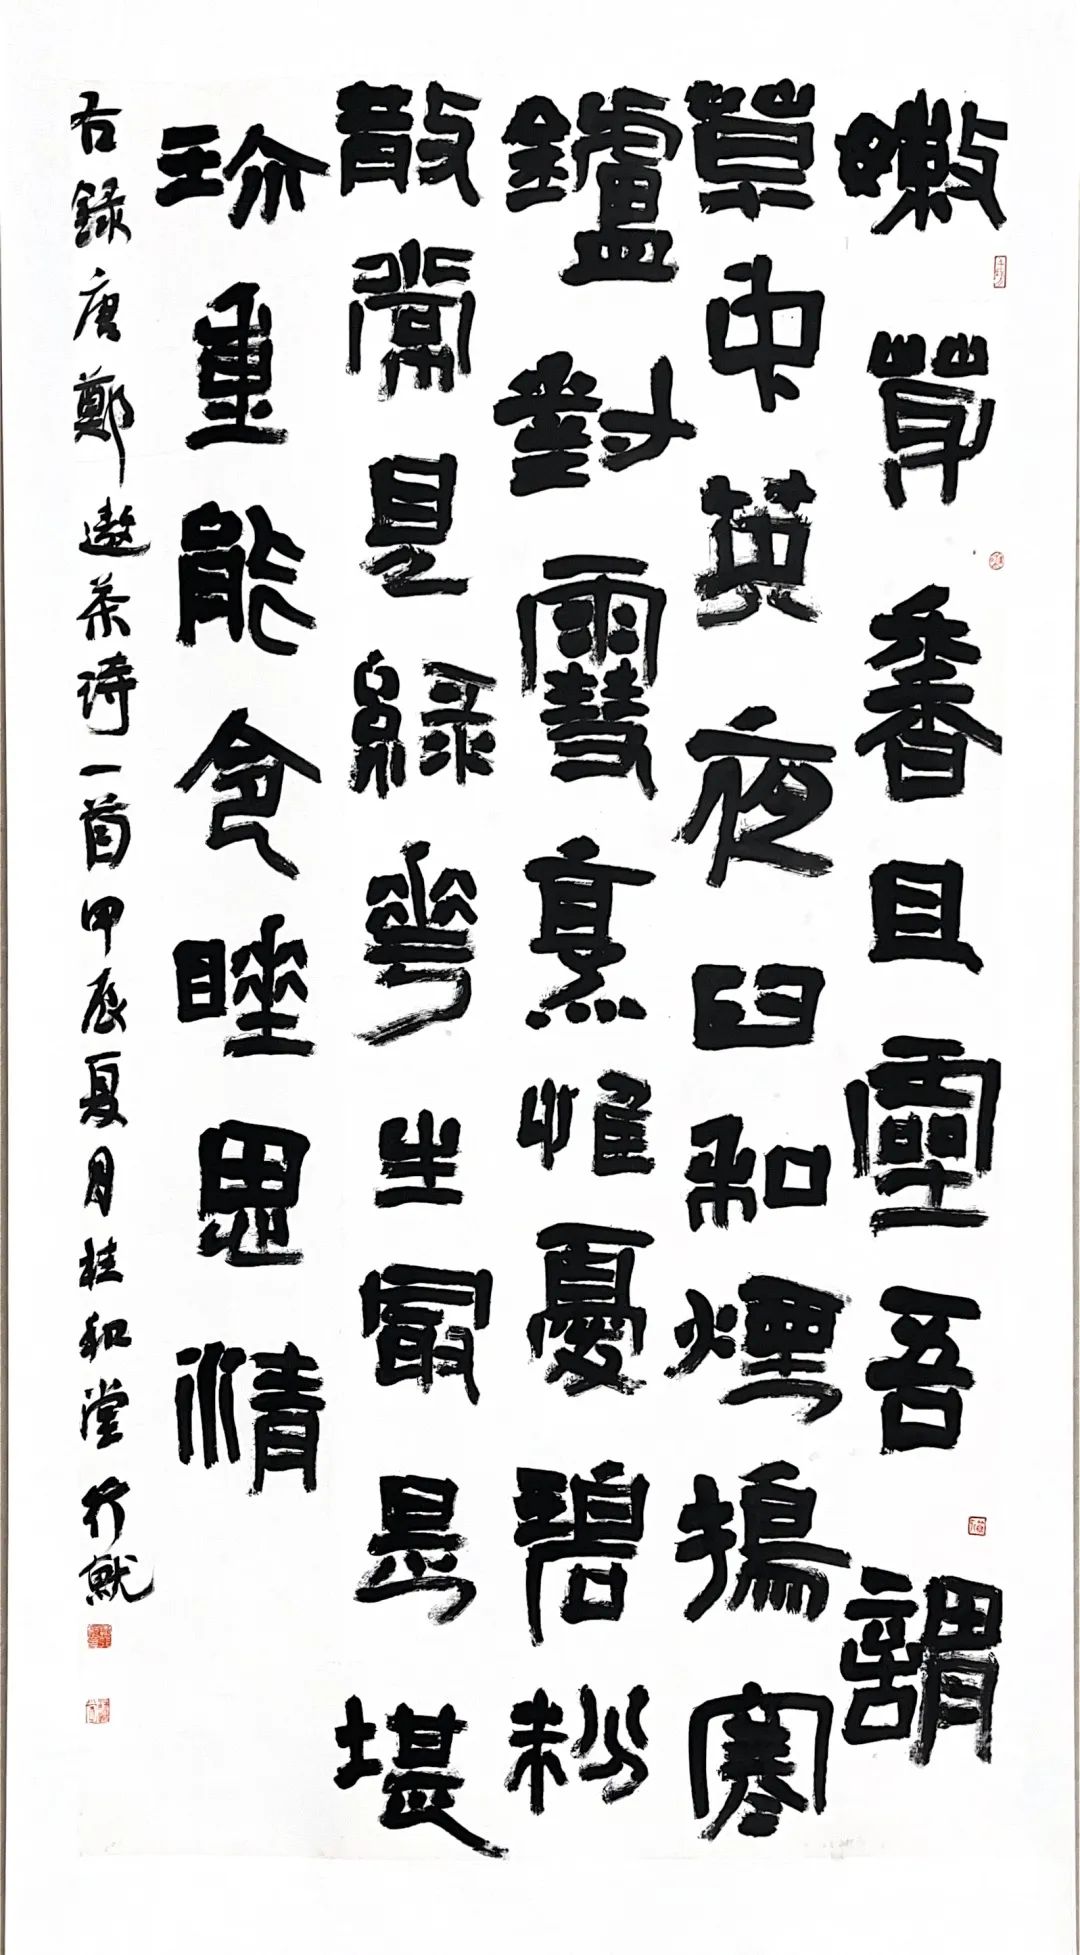 嫩芽香且靈吾謂
草中英夜臼和煙搗寒
鑪對雪烹惟憂碧粉
散常見綠華生最是堪
珍重能令睡思清
右錄唐鄭遨茶詩一首甲辰夏月桂和堂行猷